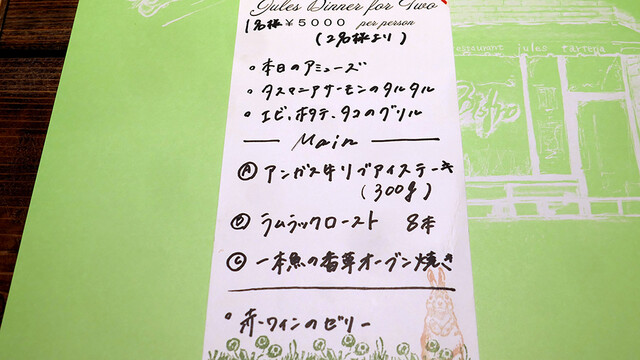 Jules Dinner for Two
1名様 ¥5000 per person
(2名様より)
• 本日のアミューズ
• タスマニアサーモンのタルタル
• エビ、ホタテ、タコのグリル
Main
Ⓐ アンガス牛リブアイステーキ
(300g)
Ⓑ ラムラックロースト 8本
Ⓒ 一本魚の香草オーブン焼き
• 赤ワインのゼリー
restaurant jules verrena
Bistro